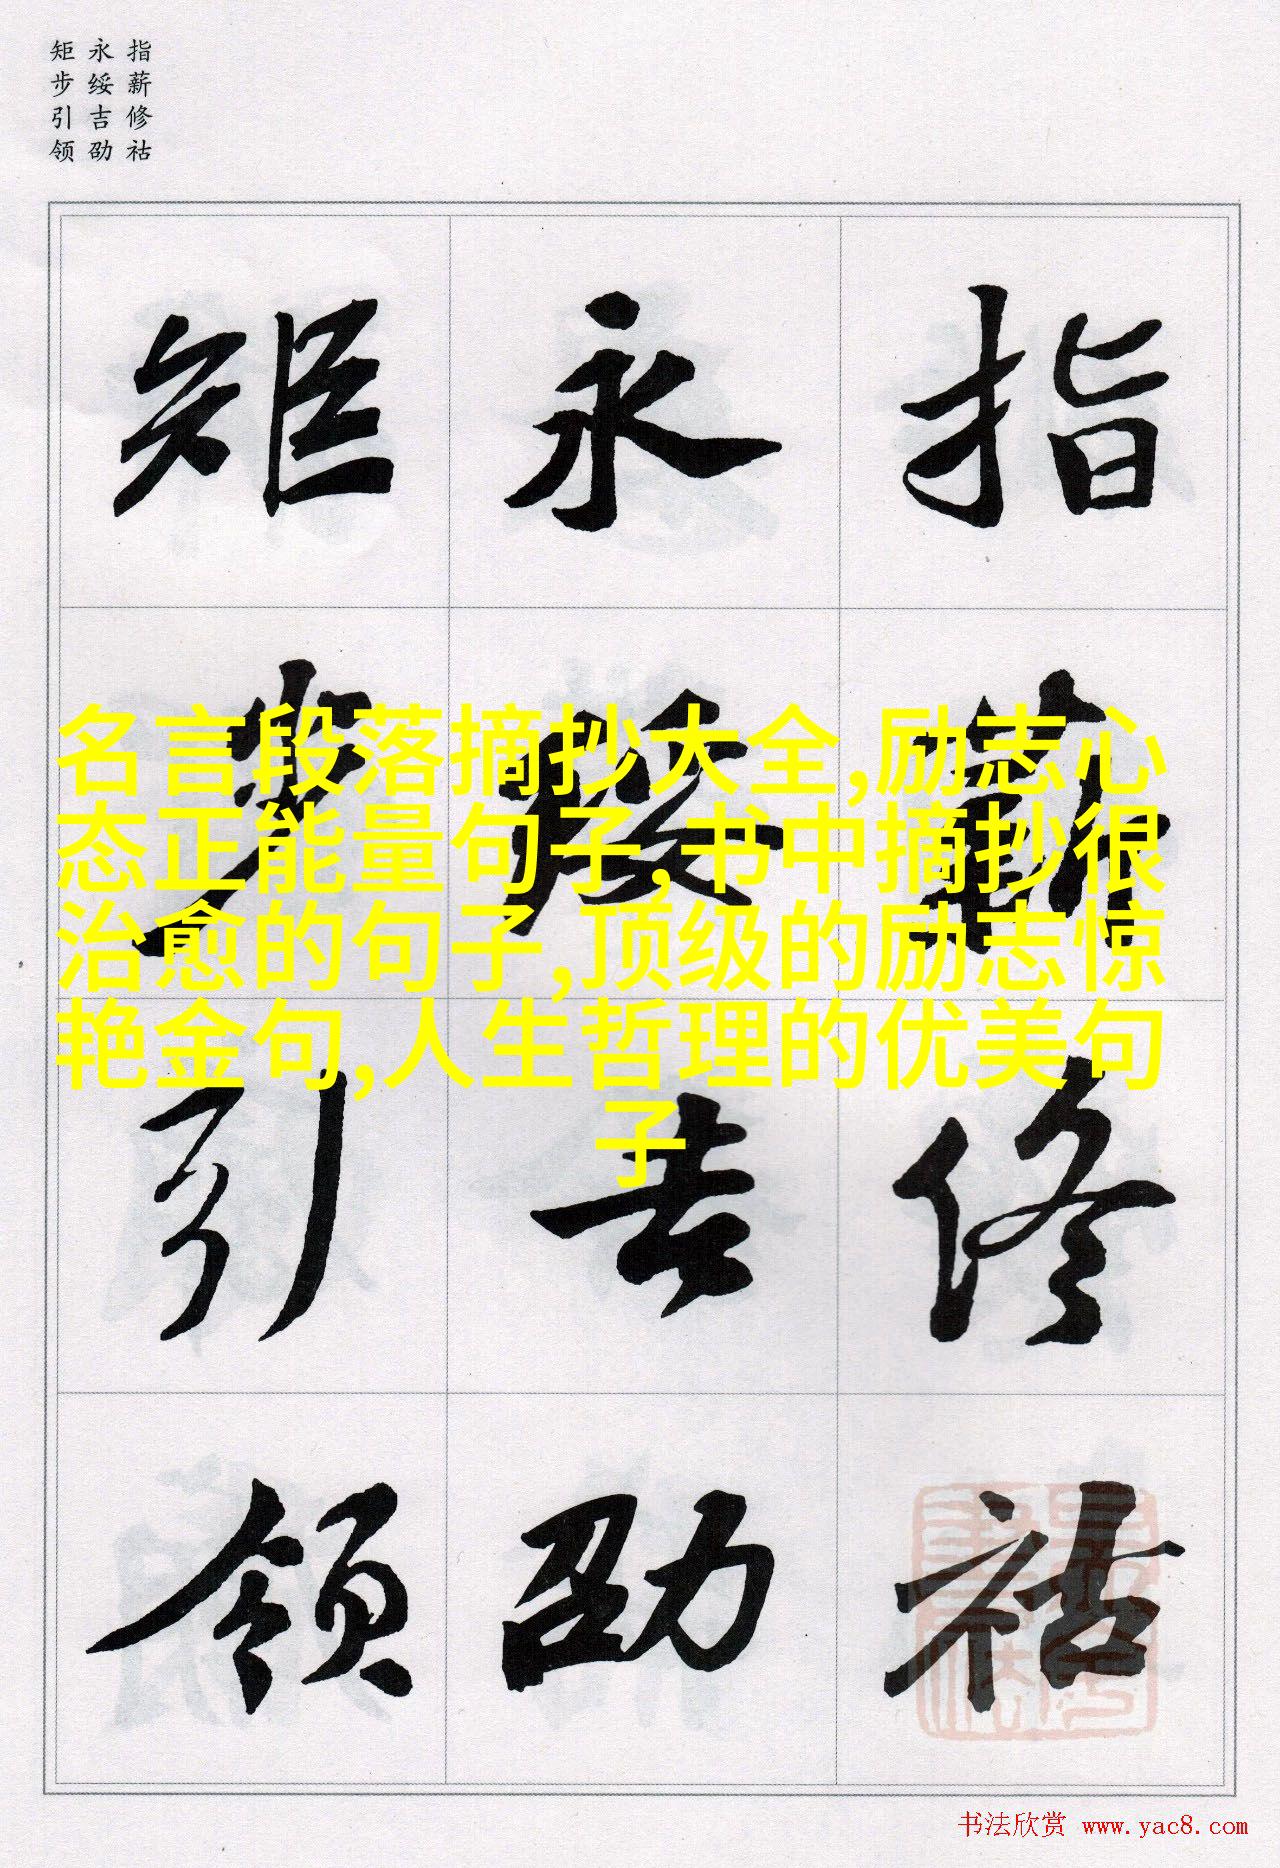 指薪修祜
永绥吉劭
矩步引领
指薪修祜
永绥吉劭
矩步引领
名言段落摘抄大全,励志心
态正能量句子,书中摘抄很
治愈的句子,顶级的励志惊
艳金句,人生哲理的优美句
子
书法欣赏 www.yac8.com